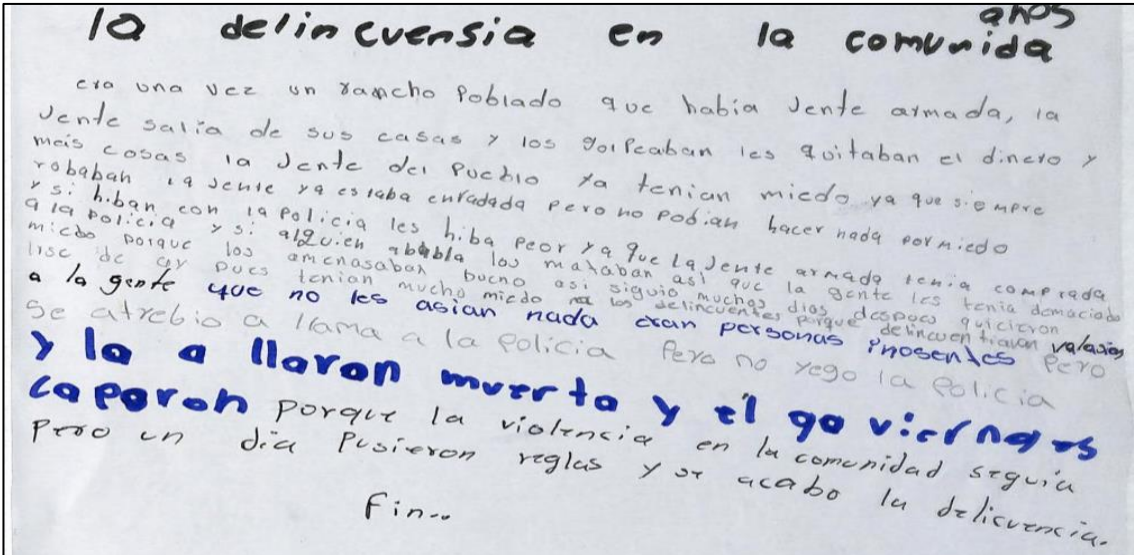 años
la delincuensia en la comunida
era una vez un rancho poblado que había Jente armada, la
Jente salía de sus casas y los golpeaban les quitaban el dinero y
mas cosas la Jente del pueblo ya tenian miedo ya que siempre
robaban la Jente ya estaba enfadada pero no podian hacer nada por miedo
y si hiban con la policia les hiba peor ya que la Jente armada tenia comprada
a la policia y si alguien los mataban así que la gente les tenia demaciado
miedo porque los amenasaban bueno asi siguio muchos dias despues quicieron
de pues tenian mucho miedo los delincuentes porque
a la gente que no les asian nada eran personas inosentes pero
se atrebio a llama a la policia Pero no yego la policia
y la a llaron muerta y el
caparon porque la violencia en la comunidad seguia
Pero un día Pusieron reglas y se acabo la delicuencia.
Fin..